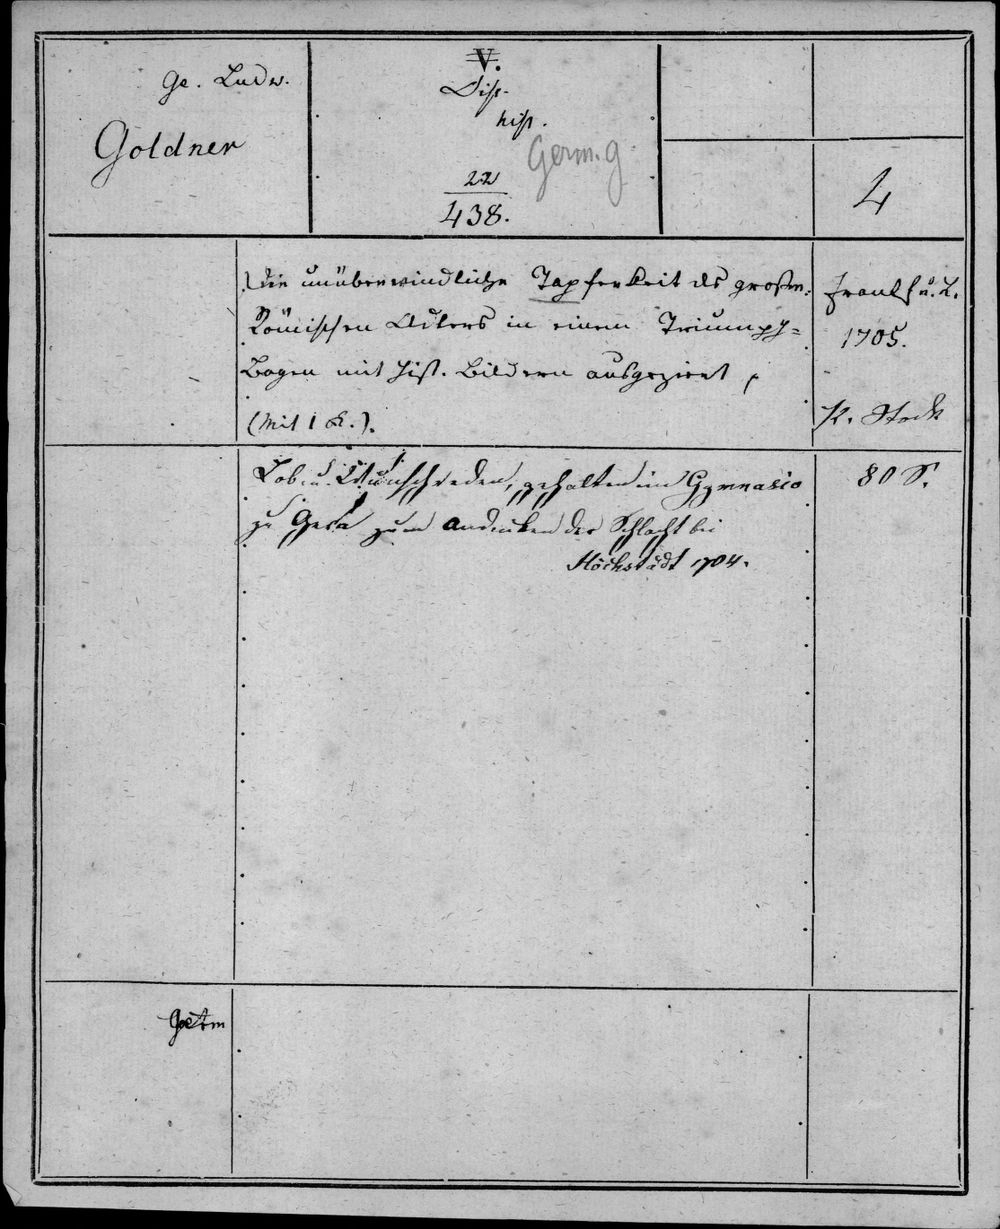 Ge. Ludw.
Goldner
V.
Diss.
hist.
Germ. g.
22
438.
4
Die unüberwindliche Tapferkeit des großen
Römischen Adlers in einem Triumph=
Bogen mit hist. Bildern ausgeziert,
(Mit 1 K.).
Frankf. u. L.
1705.
K. Stock
Lob- u. Wunschreden, gehalten im Gymnasio
zu Gera zum Andenken der Schlacht bei
Höchstädt 1704.
80 S.